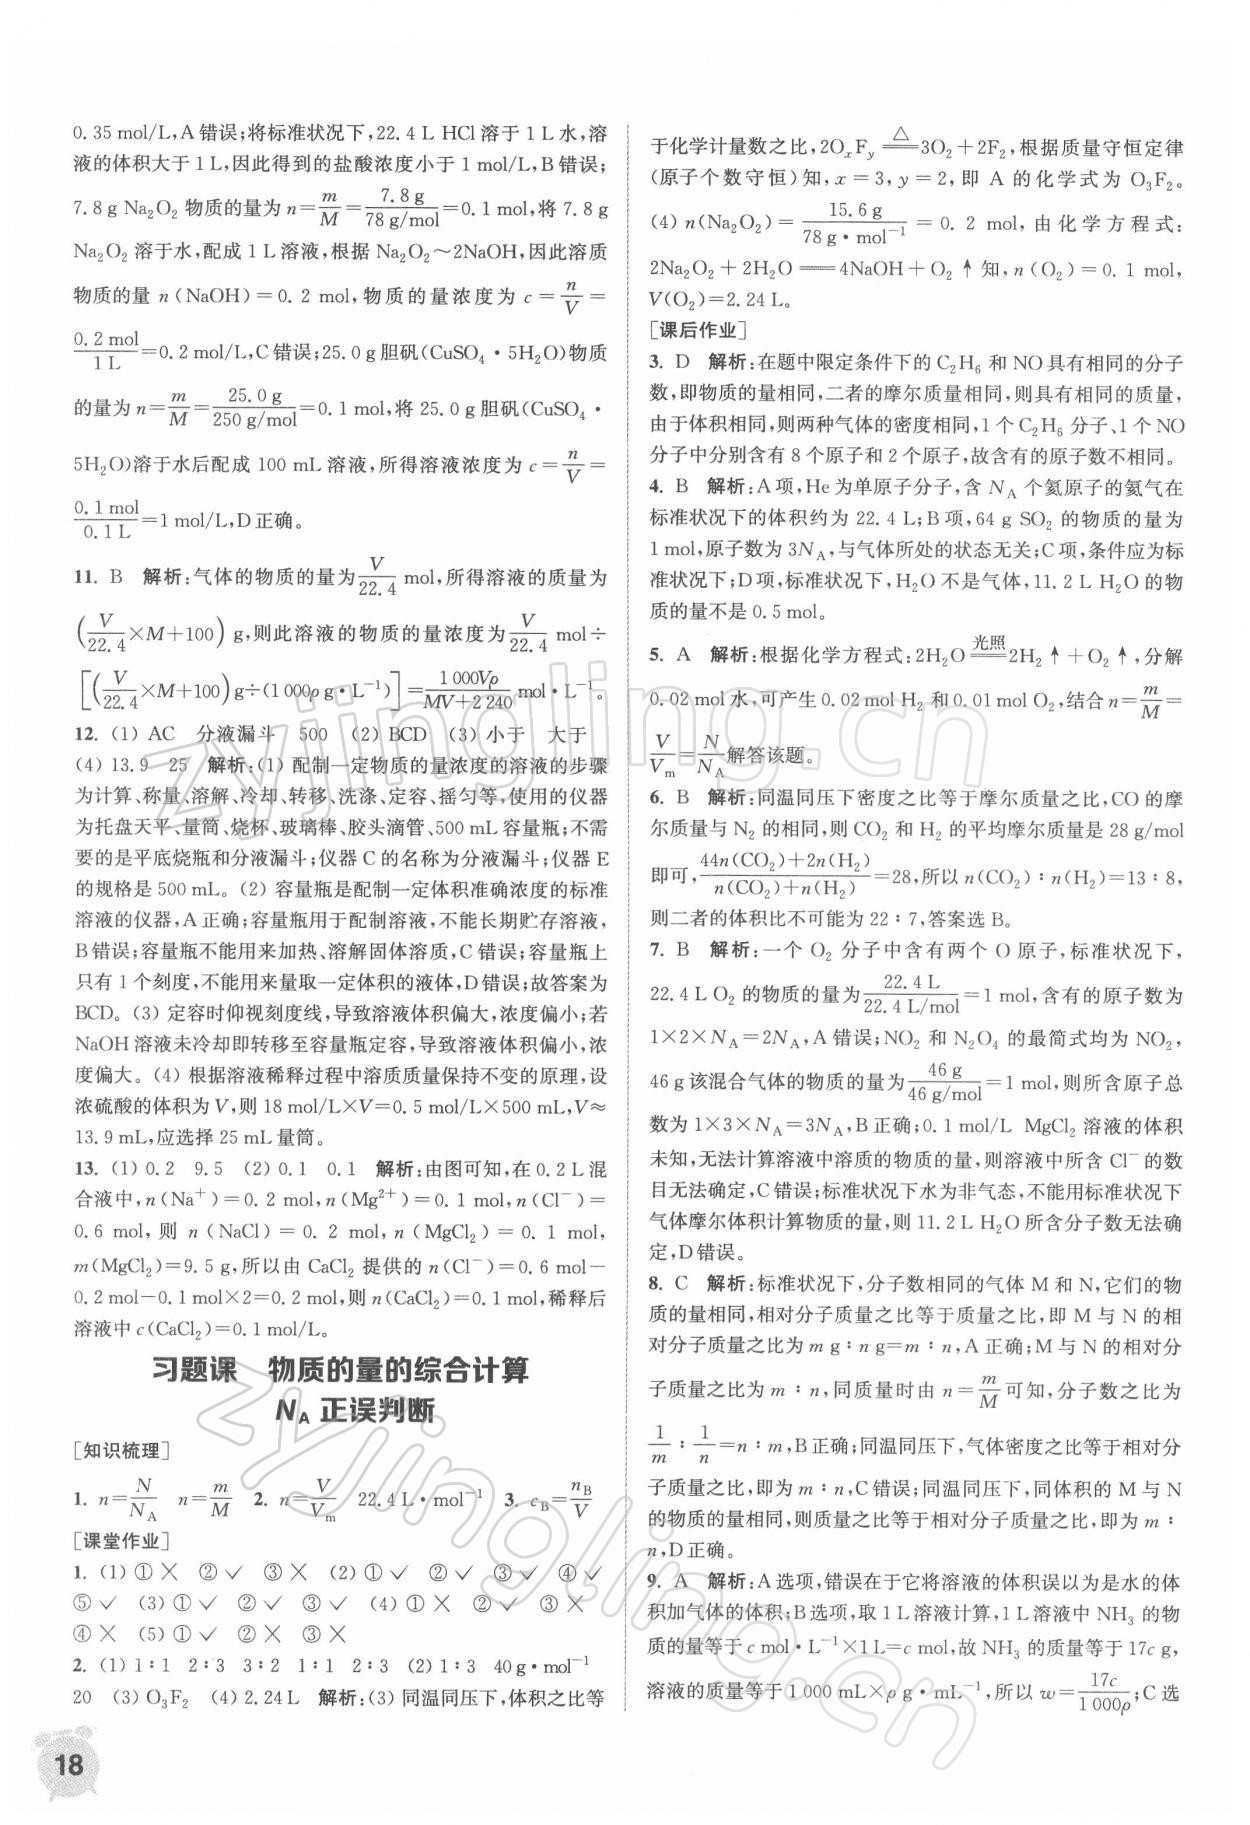 0.35 mol/L,A错误;将标准状况下,22.4 L HCl溶于1 L水,溶
液的体积大于1 L,因此得到的盐酸浓度小于1 mol/L,B错误;
7.8 g Na₂O₂ 物质的量为 n=m/M=7.8 g/78 g/mol=0.1 mol,将 7.8 g
Na₂O₂ 溶于水,配成1 L溶液,根据 Na₂O₂～2NaOH,因此溶质
物质的量 n(NaOH)=0.2 mol,物质的量浓度为 c=n/V=
0.2 mol/1 L=0.2 mol/L,C错误;25.0 g胆矾(CuSO₄·5H₂O)物质
的量为 n=m/M=25.0 g/250 g/mol=0.1 mol,将 25.0 g胆矾(CuSO₄·
5H₂O)溶于水后配成 100 mL 溶液,所得溶液浓度为 c=n/V=
0.1 mol/0.1 L=1 mol/L,D正确。
11. B 解析:气体的物质的量为V/22.4 mol,所得溶液的质量为
(V/22.4×M+100) g,则此溶液的物质的量浓度为V/22.4 mol÷
[(V/22.4×M+100)g÷(1 000ρ g·L⁻¹)]=1 000Vρ/MV+2 240 mol·L⁻¹。
12. (1) AC 分液漏斗 500 (2) BCD (3) 小于 大于
(4) 13.9 25 解析:(1) 配制一定物质的量浓度的溶液的步骤
为计算、称量、溶解、冷却、转移、洗涤、定容、摇匀等,使用的仪器
为托盘天平、量筒、烧杯、玻璃棒、胶头滴管、500 mL容量瓶;不需
要的是平底烧瓶和分液漏斗;仪器C的名称为分液漏斗;仪器E
的规格是500 mL。(2) 容量瓶是配制一定体积准确浓度的标准
溶液的仪器,A正确;容量瓶用于配制溶液,不能长期贮存溶液,
B错误;容量瓶不能用来加热、溶解固体溶质,C错误;容量瓶上
只有1个刻度,不能用来量取一定体积的液体,D错误;故答案为
BCD。(3) 定容时仰视刻度线,导致溶液体积偏大,浓度偏小;若
NaOH溶液未冷却即转移至容量瓶定容,导致溶液体积偏小,浓
度偏大。(4) 根据溶液稀释过程中溶质质量保持不变的原理,设
浓硫酸的体积为V,则18 mol/L×V=0.5 mol/L×500 mL,V≈
13.9 mL,应选择25 mL量筒。
13. (1) 0.2 9.5 (2) 0.1 0.1 解析:由图可知,在0.2 L混
合液中,n(Na⁺)=0.2 mol,n(Mg²⁺)=0.1 mol,n(Cl⁻)=
0.6 mol,则 n(NaCl)=0.2 mol,n(MgCl₂)=0.1 mol,
m(MgCl₂)=9.5 g,所以由 CaCl₂ 提供的 n(Cl⁻)=0.6 mol－
0.2 mol－0.1 mol×2=0.2 mol,则n(CaCl₂)=0.1 mol,稀释后
溶液中c(CaCl₂)=0.1 mol/L。
习题课 物质的量的综合计算
N_A 正误判断
[知识梳理]
1. n=N/N_A n=m/M 2. n=V/V_m 22.4 L·mol⁻¹ 3. c_B=n_B/V
[课堂作业]
1. (1) ①× ②✓ ③× (2) ①✓ ②✓ ③✓ ④✓
⑤✓ (3) ①✓ ②✓ ③✓ (4) ①× ②✓ ③×
④× (5) ①✓ ②× ③×
2. (1) 1∶1 2∶3 3∶2 1∶1 2∶3 (2) 1∶3 40 g·mol⁻¹
20 (3) O₃F₂ (4) 2.24 L 解析:(3) 同温同压下,体积之比等
于化学计量数之比,2OₓF_y =△= 3O₂+2F₂,根据质量守恒定律
(原子个数守恒)知,x=3,y=2,即 A 的化学式为 O₃F₂。
(4) n(Na₂O₂)=15.6 g/78 g·mol⁻¹=0.2 mol,由化学方程式:
2Na₂O₂+2H₂O══4NaOH+O₂↑知,n(O₂)=0.1 mol,
V(O₂)=2.24 L。
[课后作业]
3. D 解析:在题中限定条件下的 C₂H₆ 和 NO具有相同的分子
数,即物质的量相同,二者的摩尔质量相同,则具有相同的质量,
由于体积相同,则两种气体的密度相同,1个 C₂H₆ 分子、1个 NO
分子中分别含有8个原子和2个原子,故含有的原子数不相同。
4. B 解析:A项,He为单原子分子,含 N_A 个氦原子的氦气在
标准状况下的体积约为 22.4 L;B项,64 g SO₂ 的物质的量为
1 mol,原子数为3N_A,与气体所处的状态无关;C项,条件应为标
准状况下;D项,标准状况下,H₂O不是气体,11.2 L H₂O的物
质的量不是0.5 mol。
5. A 解析:根据化学方程式:2H₂O =光照= 2H₂↑+O₂↑,分解
0.02 mol水,可产生0.02 mol H₂ 和0.01 mol O₂,结合n=m/M=
V/V_m=N/N_A解答该题。
6. B 解析:同温同压下密度之比等于摩尔质量之比,CO的摩
尔质量与 N₂ 的相同,则 CO₂ 和 H₂ 的平均摩尔质量是 28 g/mol
即可,44n(CO₂)+2n(H₂)/n(CO₂)+n(H₂)=28,所以 n(CO₂)∶n(H₂)=13∶8,
则二者的体积比不可能为22∶7,答案选B。
7. B 解析:一个 O₂ 分子中含有两个 O 原子,标准状况下,
22.4 L O₂ 的物质的量为22.4 L/22.4 L/mol=1 mol,含有的原子数为
1×2×N_A=2N_A,A错误;NO₂ 和 N₂O₄ 的最简式均为 NO₂,
46 g该混合气体的物质的量为46 g/46 g/mol=1 mol,则所含原子总
数为1×3×N_A=3N_A,B正确;0.1 mol/L MgCl₂ 溶液的体积
未知,无法计算溶液中溶质的物质的量,则溶液中所含 Cl⁻ 的数
目无法确定,C错误;标准状况下水为非气态,不能用标准状况下
气体摩尔体积计算物质的量,则11.2 L H₂O所含分子数无法确
定,D错误。
8. C 解析:标准状况下,分子数相同的气体M和N,它们的物
质的量相同,相对分子质量之比等于质量之比,即M与N的相
对分子质量之比为m g∶n g=m∶n,A正确;M与N的相对分
子质量之比为 m∶n,同质量时由 n=m/M可知,分子数之比为
1/m∶1/n=n∶m,B正确;同温同压下,气体密度之比等于相对分
子质量之比,即为 m∶n,C错误;同温同压下,同体积的M与N
的物质的量相同,则质量之比等于相对分子质量之比,即为 m∶
n,D正确。
9. A 解析:A选项,错误在于它将溶液的体积误以为是水的体
积加气体的体积;B选项,取1 L溶液计算,1 L溶液中 NH₃ 的物
质的量等于c mol·L⁻¹×1 L=c mol,故 NH₃ 的质量等于17c g,
溶液的质量等于1 000 mL×ρ g·mL⁻¹,所以 w=17c/1 000ρ;C选
18
zyjingling.cn
zyjingling.cn